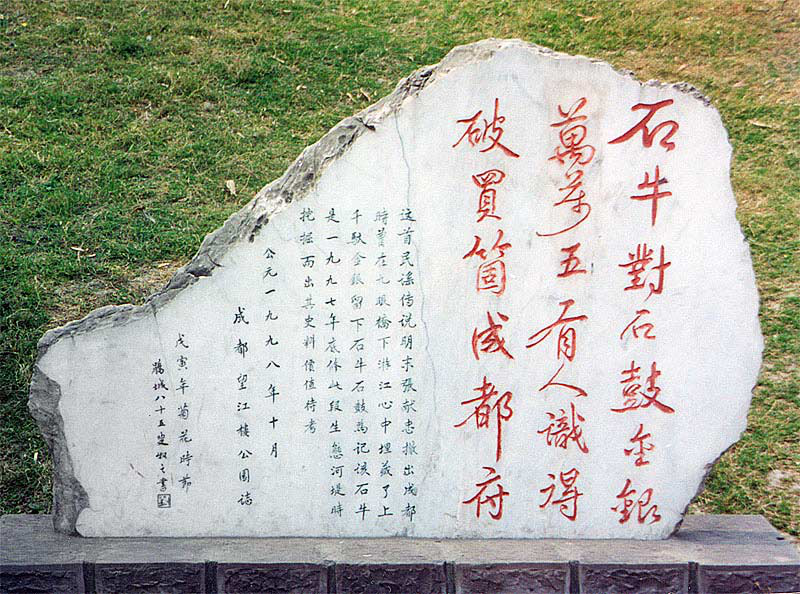 石牛對石鼓金銀
萬萬五有人識得
破買箇成都府
这首民谣传说明末張献忠撤出成都
時曾在九眼橋下游江心中埋藏了上
千馱金銀留下石牛石鼓為记該石牛
是一九九七年底修此段生態河堤時
挖掘而出其史料價值待考
公元一九九八年十月
成都望江樓公園誌
戊寅年菊花時節
城八十五叟書